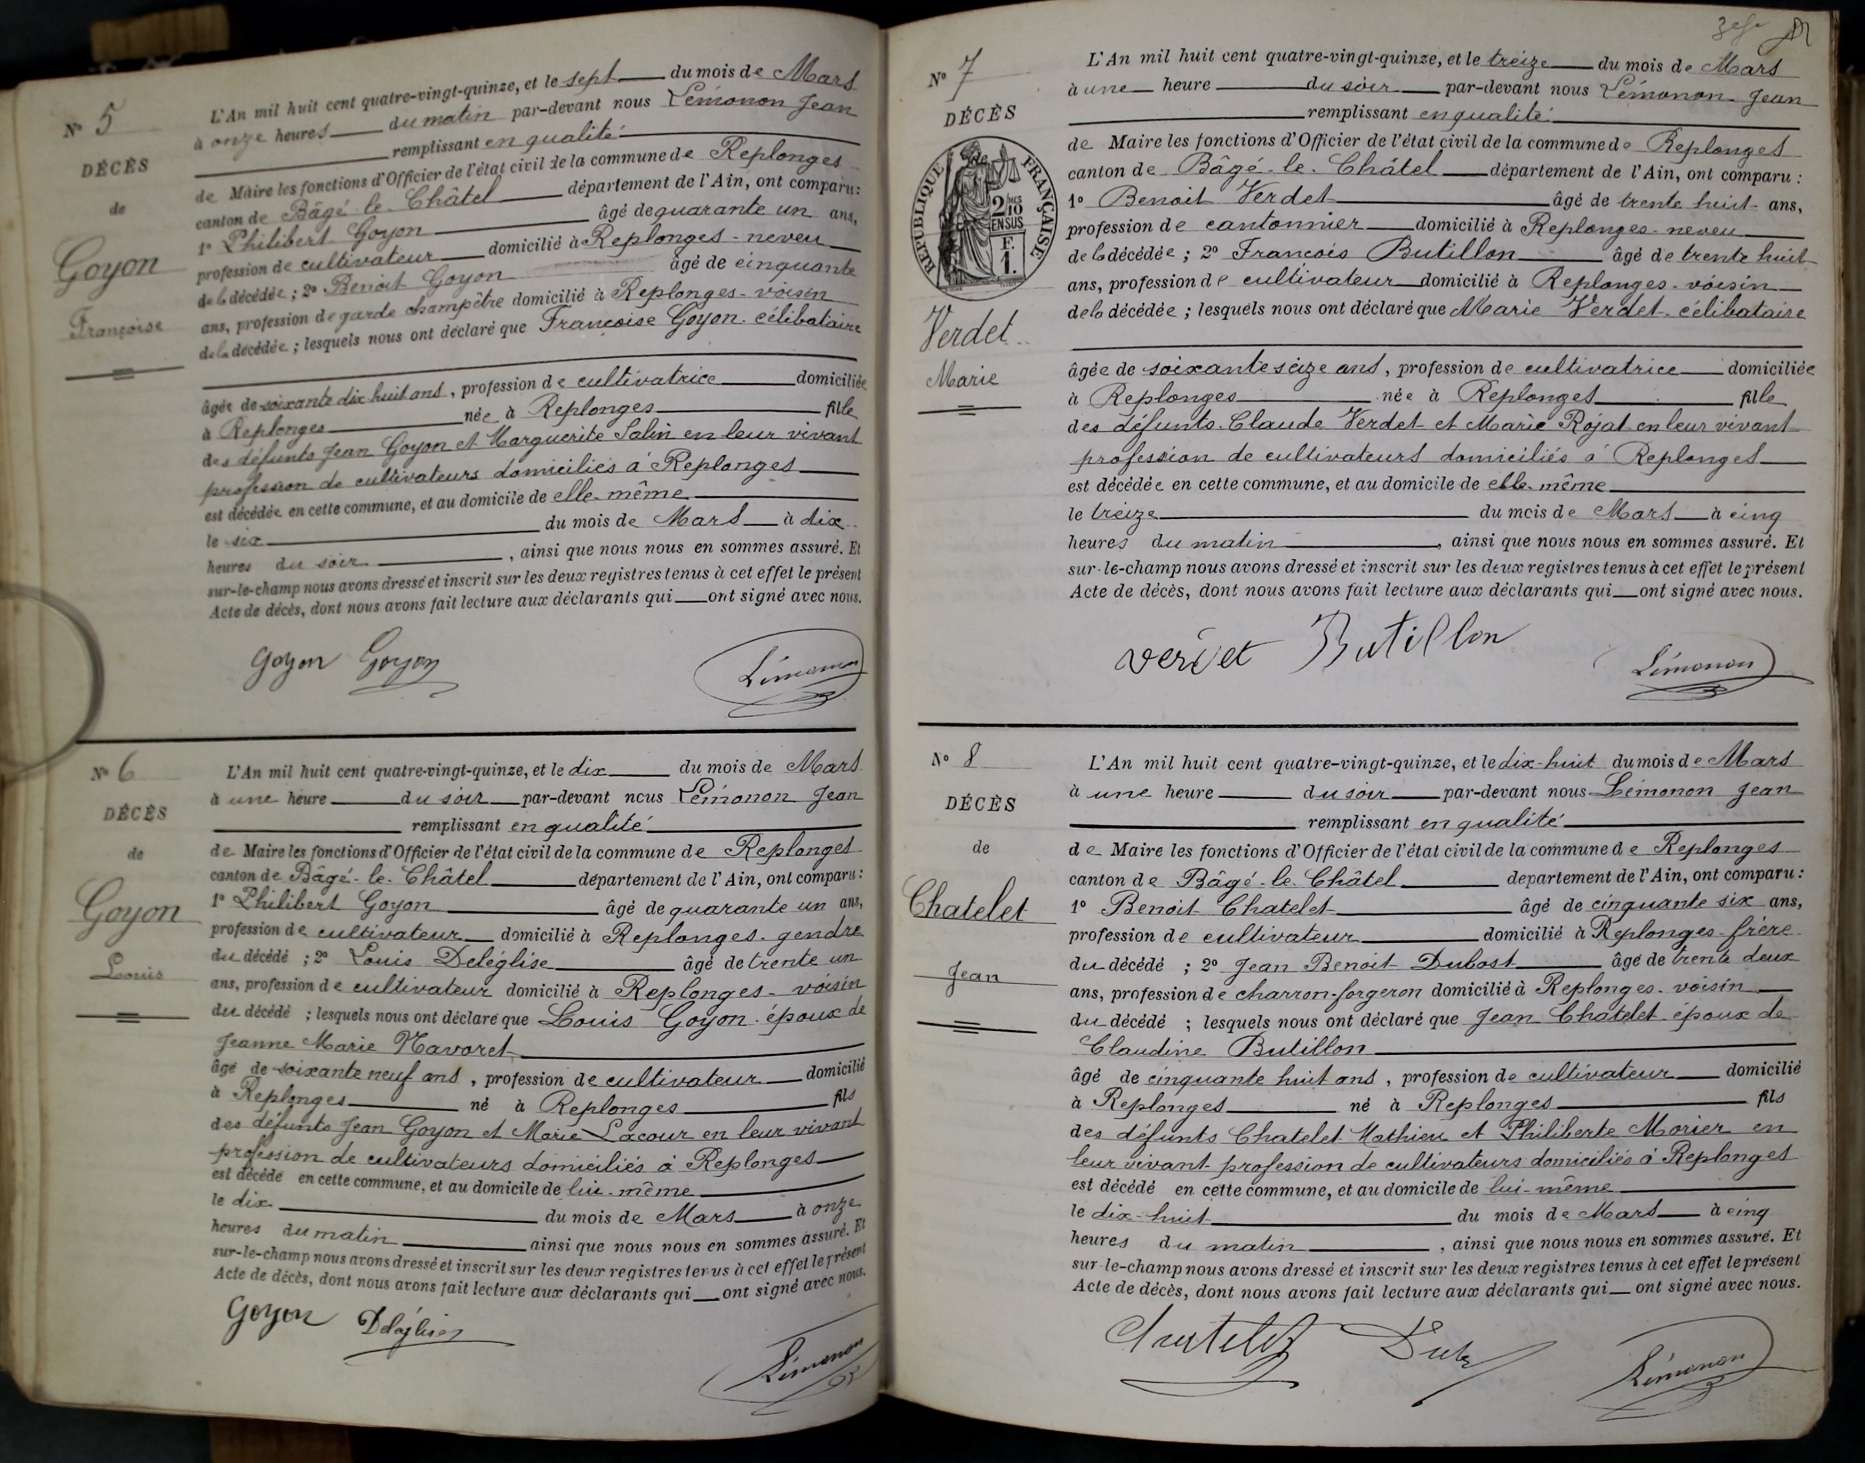 Nº 5
DÉCÈS
de
Goyon
Françoise
L'An mil huit cent quatre-vingt-quinze, et le sept du mois de Mars
à onze heures du matin par-devant nous Lémonon Jean
remplissant en qualité
de Maire les fonctions d'Officier de l'état civil de la commune de Replonges
canton de Bâgé-le-Châtel département de l'Ain, ont comparu :
1º Philibert Goyon âgé de quarante un ans,
profession de cultivateur domicilié à Replonges - neveu
de la décédée ; 2º Benoit Goyon âgé de cinquante
ans, profession de garde champêtre domicilié à Replonges - voisin
de la décédée ; lesquels nous ont déclaré que Françoise Goyon célibataire
âgée de soixante dix huit ans, profession de cultivatrice domiciliée
à Replonges née à Replonges fille
des défunts Jean Goyon et Marguerite Salin en leur vivant
profession de cultivateurs domiciliés à Replonges
est décédée en cette commune, et au domicile de elle-même
le six du mois de Mars à dix
heures du soir, ainsi que nous nous en sommes assuré. Et
sur-le-champ nous avons dressé et inscrit sur les deux registres tenus à cet effet le présent
Acte de décès, dont nous avons fait lecture aux déclarants qui ont signé avec nous.
Goyon Goyon Lémonon
Nº 6
DÉCÈS
de
Goyon
Louis
L'An mil huit cent quatre-vingt-quinze, et le dix du mois de Mars
à une heure du soir par-devant nous Lémonon Jean
remplissant en qualité
de Maire les fonctions d'Officier de l'état civil de la commune de Replonges
canton de Bâgé-le-Châtel département de l'Ain, ont comparu :
1º Philibert Goyon âgé de quarante un ans,
profession de cultivateur domicilié à Replonges - gendre
du décédé ; 2º Louis Deléglise âgé de trente un
ans, profession de cultivateur domicilié à Replonges - voisin
du décédé ; lesquels nous ont déclaré que Louis Goyon époux de
Jeanne Marie Navoret
âgé de soixante neuf ans, profession de cultivateur domicilié
à Replonges né à Replonges fils
des défunts Jean Goyon et Marie Lacour en leur vivant
profession de cultivateurs domiciliés à Replonges
est décédé en cette commune, et au domicile de lui-même
le dix du mois de Mars à onze
heures du matin ainsi que nous nous en sommes assuré. Et
sur-le-champ nous avons dressé et inscrit sur les deux registres tenus à cet effet le présent
Acte de décès, dont nous avons fait lecture aux déclarants qui ont signé avec nous.
Goyon Déléglise Lémonon
Nº 7
DÉCÈS
RÉPUBLIQUE FRANÇAISE
2/10
EN SUS
1 F.
Verdet
Marie
L'An mil huit cent quatre-vingt-quinze, et le treize du mois de Mars
à une heure du soir par-devant nous Lémonon Jean
remplissant en qualité
de Maire les fonctions d'Officier de l'état civil de la commune de Replonges
canton de Bâgé-le-Châtel département de l'Ain, ont comparu :
1º Benoit Verdet âgé de trente huit ans,
profession de cantonnier domicilié à Replonges - neveu
de la décédée ; 2º François Butillon âgé de trente huit
ans, profession de cultivateur domicilié à Replonges - voisin
de la décédée ; lesquels nous ont déclaré que Marie Verdet célibataire
âgée de soixante seize ans, profession de cultivatrice domiciliée
à Replonges née à Replonges fille
des défunts Claude Verdet et Marie Rojat en leur vivant
profession de cultivateurs domiciliés à Replonges
est décédée en cette commune, et au domicile de elle-même
le treize du mois de Mars à cinq
heures du matin, ainsi que nous nous en sommes assuré. Et
sur-le-champ nous avons dressé et inscrit sur les deux registres tenus à cet effet le présent
Acte de décès, dont nous avons fait lecture aux déclarants qui ont signé avec nous.
verdet Butillon Lémonon
Nº 8
DÉCÈS
de
Chatelet
Jean
L'An mil huit cent quatre-vingt-quinze, et le dix-huit du mois de Mars
à une heure du soir par-devant nous Lémonon Jean
remplissant en qualité
de Maire les fonctions d'Officier de l'état civil de la commune de Replonges
canton de Bâgé-le-Châtel département de l'Ain, ont comparu :
1º Benoit Chatelet âgé de cinquante six ans,
profession de cultivateur domicilié à Replonges - frère
du décédé ; 2º Jean Benoit Dubost âgé de trente deux
ans, profession de charron-forgeron domicilié à Replonges - voisin
du décédé ; lesquels nous ont déclaré que Jean Chatelet époux de
Claudine Butillon
âgé de cinquante huit ans, profession de cultivateur domicilié
à Replonges né à Replonges fils
des défunts Chatelet Mathieu et Philiberte Morier en
leur vivant profession de cultivateurs domiciliés à Replonges
est décédé en cette commune, et au domicile de lui-même
le dix-huit du mois de Mars à cinq
heures du matin, ainsi que nous nous en sommes assuré. Et
sur-le-champ nous avons dressé et inscrit sur les deux registres tenus à cet effet le présent
Acte de décès, dont nous avons fait lecture aux déclarants qui ont signé avec nous.
Lémonon